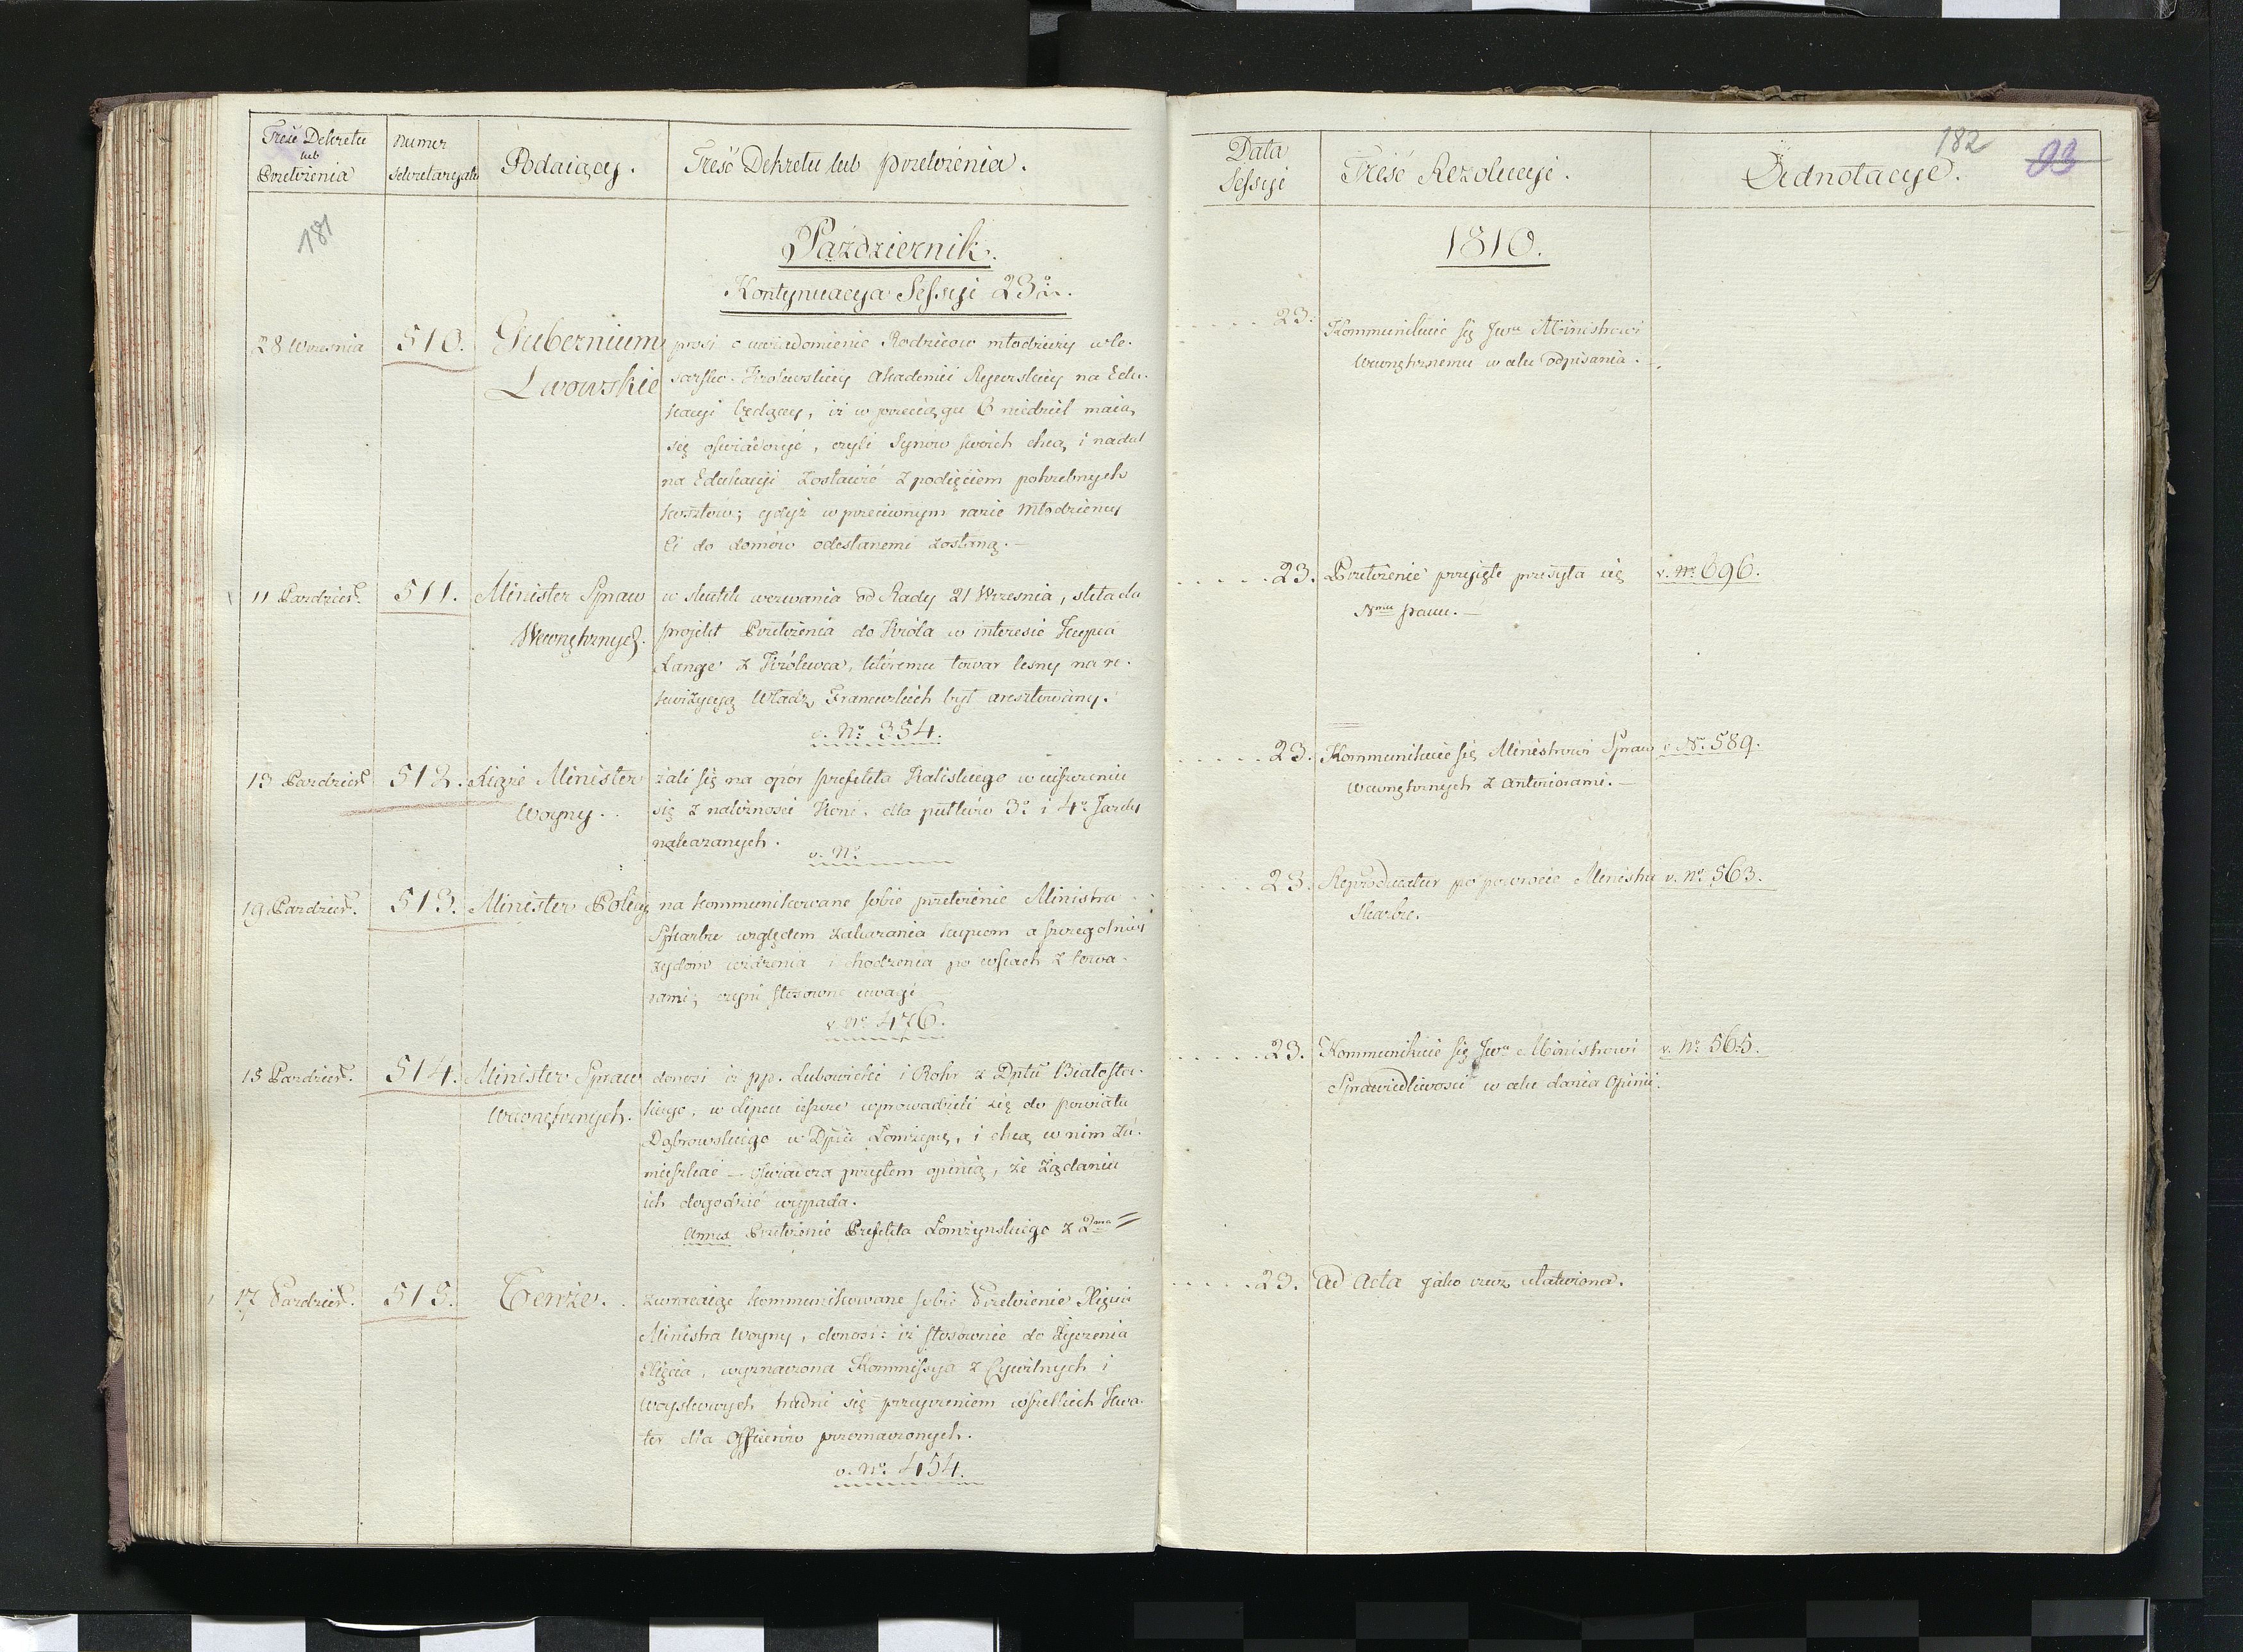 Treść Dekretu
lub
Przełożenia
Numer
Sekretaryatu
Podaiący.
Treść Dekretu lub przełożenia.
181
Październik.
Kontynuacya Sessyi 23º
28 Wrzesnia
510.
Gubernium
Lwowskie
prosi o uwiadomienie Rodzicow młodzieży w Ce-
sarsko-Krolewskiey Akademii Rycerskiey na Edu-
kacyi będącey, iż w przeciągu 6 niedziel maią
się oświadczyć, czyli Synów swoich chcą i nadal
na Edukacyi zostawić z podięciem potrzebnych
kosztów; gdyż w przeciwnym razie Młodzieńcy
Ci do domów odesłanemi zostaną.
11 Pazdzier.
511.
Minister Spraw
Wewnętrznych.
w skutek wezwania od Rady 21 Wrzesnia, składa
projekt Przełożenia do Króla w interesie Kupca
Lange z Królewca, któremu towar lesny na re-
kwizycyą Władz Francuzkich był aresztowany.
v. Nº 354.
13 Pazdzier
512.
Xiąże Minister
Woyny.
żali się na opór prefekta Kaliskiego w uiszczeniu
się z należności Koni, dla pułków 3º i 4º Jazdy
nakazanych.
v. Nº
19 Pazdzier.
513.
Minister Policyi
na kommunikowane sobie przełożenie Ministra
Skarbu względem zakazania kupcom a szczegolniey
żydom ieżdzenia i chodzenia po wsiach z towa-
rami, czyni stosowne uwagi
v. Nº 476.
15 Pazdzier.
514.
Minister Spraw
Wewnętrznych.
donosi iż pp. Lubowicki i Rohr z Dptu Białosto-
ckiego, w Lipcu ieszcze wprowadzili się do powiatu
Dąbrowskiego w Dptcie Łomżyns, i chcą w nim za-
mieszkać – oświadcza przytem opinią, że żądaniu
ich dogodzić wypada.
Annex Przełożenie Prefekta Łomżynskiego z 2ma
17 Pazdzier.
515.
Tenże.
zwracaiąc kommunikowane sobie Przełożenie Xięcia
Ministra Woyny, donosi: iż stosownie do Życzenia
Xięcia, wyznaczona Kommissya z Cywilnych i
Woyskowych trudni się przeyrzeniem wszelkich Kwa-
ter dla Officerów przeznaczonych.
v. Nº 454.
Data
Sessyi
Treść Rezolucyi.
Adnotacye.
182
1810.
23.
Kommunikuie się Jwu Ministrowi
Wewnętrznemu w celu odpisania.
23.
Przełożenie przyięte przesyła się
Nmu Panu.
v. Nº 696.
23.
Kommunikuie się Ministrowi Spraw
Wewnętrznych z anteriorami.
v Nº 589.
23.
Reproducatur po powrocie Ministra
Skarbu.
v. Nº 563.
23.
Kommunikuie się Jwu Ministrowi
Sprawiedliwosci w celu dania Opinii.
v. Nº 565.
23.
Ad Acta jako rzecz ułatwiona.